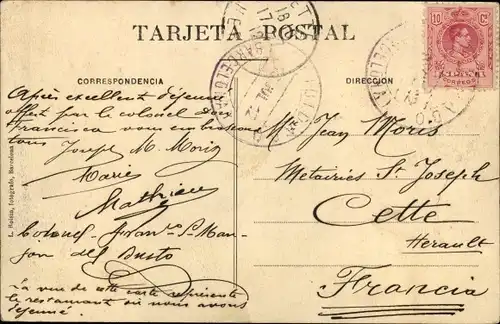 TARJETA POSTAL
CORRESPONDENCIA
DIRECCION
Après excellent déjeuner
offert par le colonel Don
Francisco vous embrassons
tous Joseph M. Moris
Marie
Mathieu
Colonel Franco Sn Man-
jon del Busto
La vue de cette carte représente
le restaurant où nous avons
déjeuné
Mr Jean Moris
Metairies St Joseph
Cette
Herault
Francia
10 Cs
CORREOS
BARCELONA
L. Roisin, fotógrafo, Barcelona